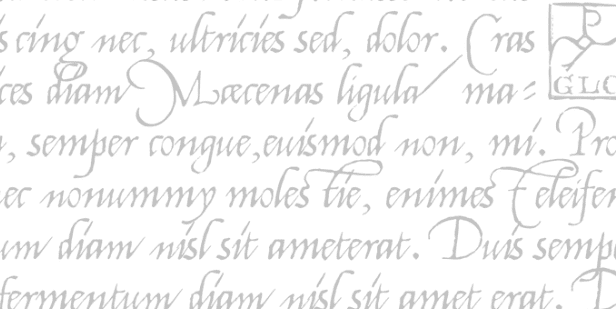 scing nec, ultricies sed, dolor. Cras
ces diam Mæcenas ligula ma=
GLO
, semper congue,euismod non, mi. Pro
ec nonummy molestie, enimes t eleifen
um diam nisl sit ameterat. Duis semp
fermentum diam nisl sit amet erat.